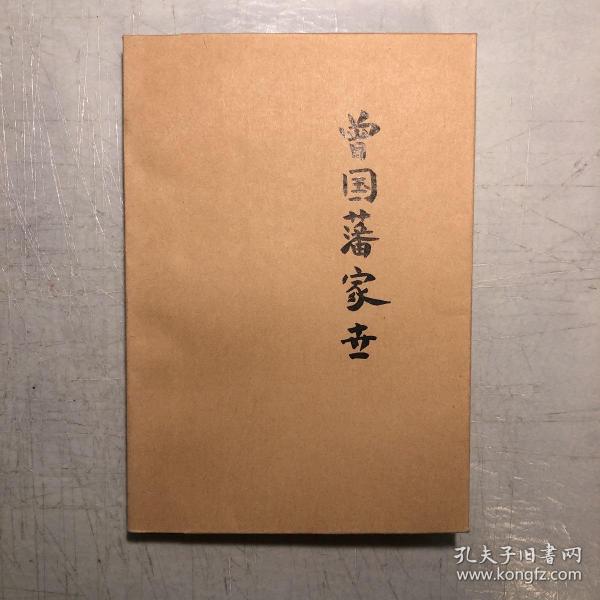 曾国藩家世
孔夫子旧書网
www.kongfz.com